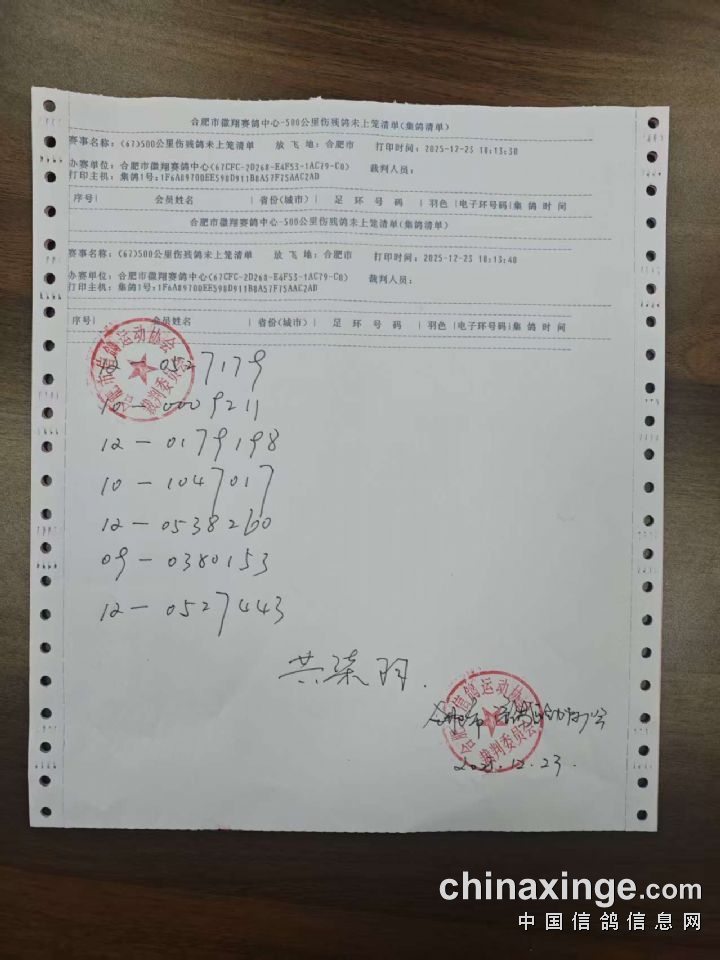 合肥市徽翔赛鸽中心-500公里伤残鸽未上笼清单(集鸽清单)
赛事名称: (67)500公里伤残鸽未上笼清单 放飞地: 合肥市 打印时间: 2025-12-23 18:13:38
办赛单位: 合肥市徽翔赛鸽中心(67CFC-2D268-E4F53-1AC79-C0) 裁判人员:
打印主机: 集鸽1号:1F6A89700EE598D911B8A57F75AAC2AD
序号| 会员姓名 |省份(城市)| 足环号码 |羽色|电子环号码|集鸽时间
合肥市徽翔赛鸽中心-500公里伤残鸽未上笼清单(集鸽清单)
赛事名称: (67)500公里伤残鸽未上笼清单 放飞地: 合肥市 打印时间: 2025-12-23 18:13:40
办赛单位: 合肥市徽翔赛鸽中心(67CFC-2D268-E4F53-1AC79-C0) 裁判人员:
打印主机: 集鸽1号:1F6A89700EE598D911B8A57F75AAC2AD
序号| 会员姓名 |省份(城市)| 足环号码 |羽色|电子环号码|集鸽时间
合肥市信鸽运动协会
裁判委员会
12-0527179
10-0009211
12-0179198
10-1047017
12-0538260
09-0380153
12-0527443
共柒羽.
合肥市信鸽运动协会
裁判委员会
合肥市信鸽运动协会
2025.12.23.
chinaxinge.com
中国信鸽信息网